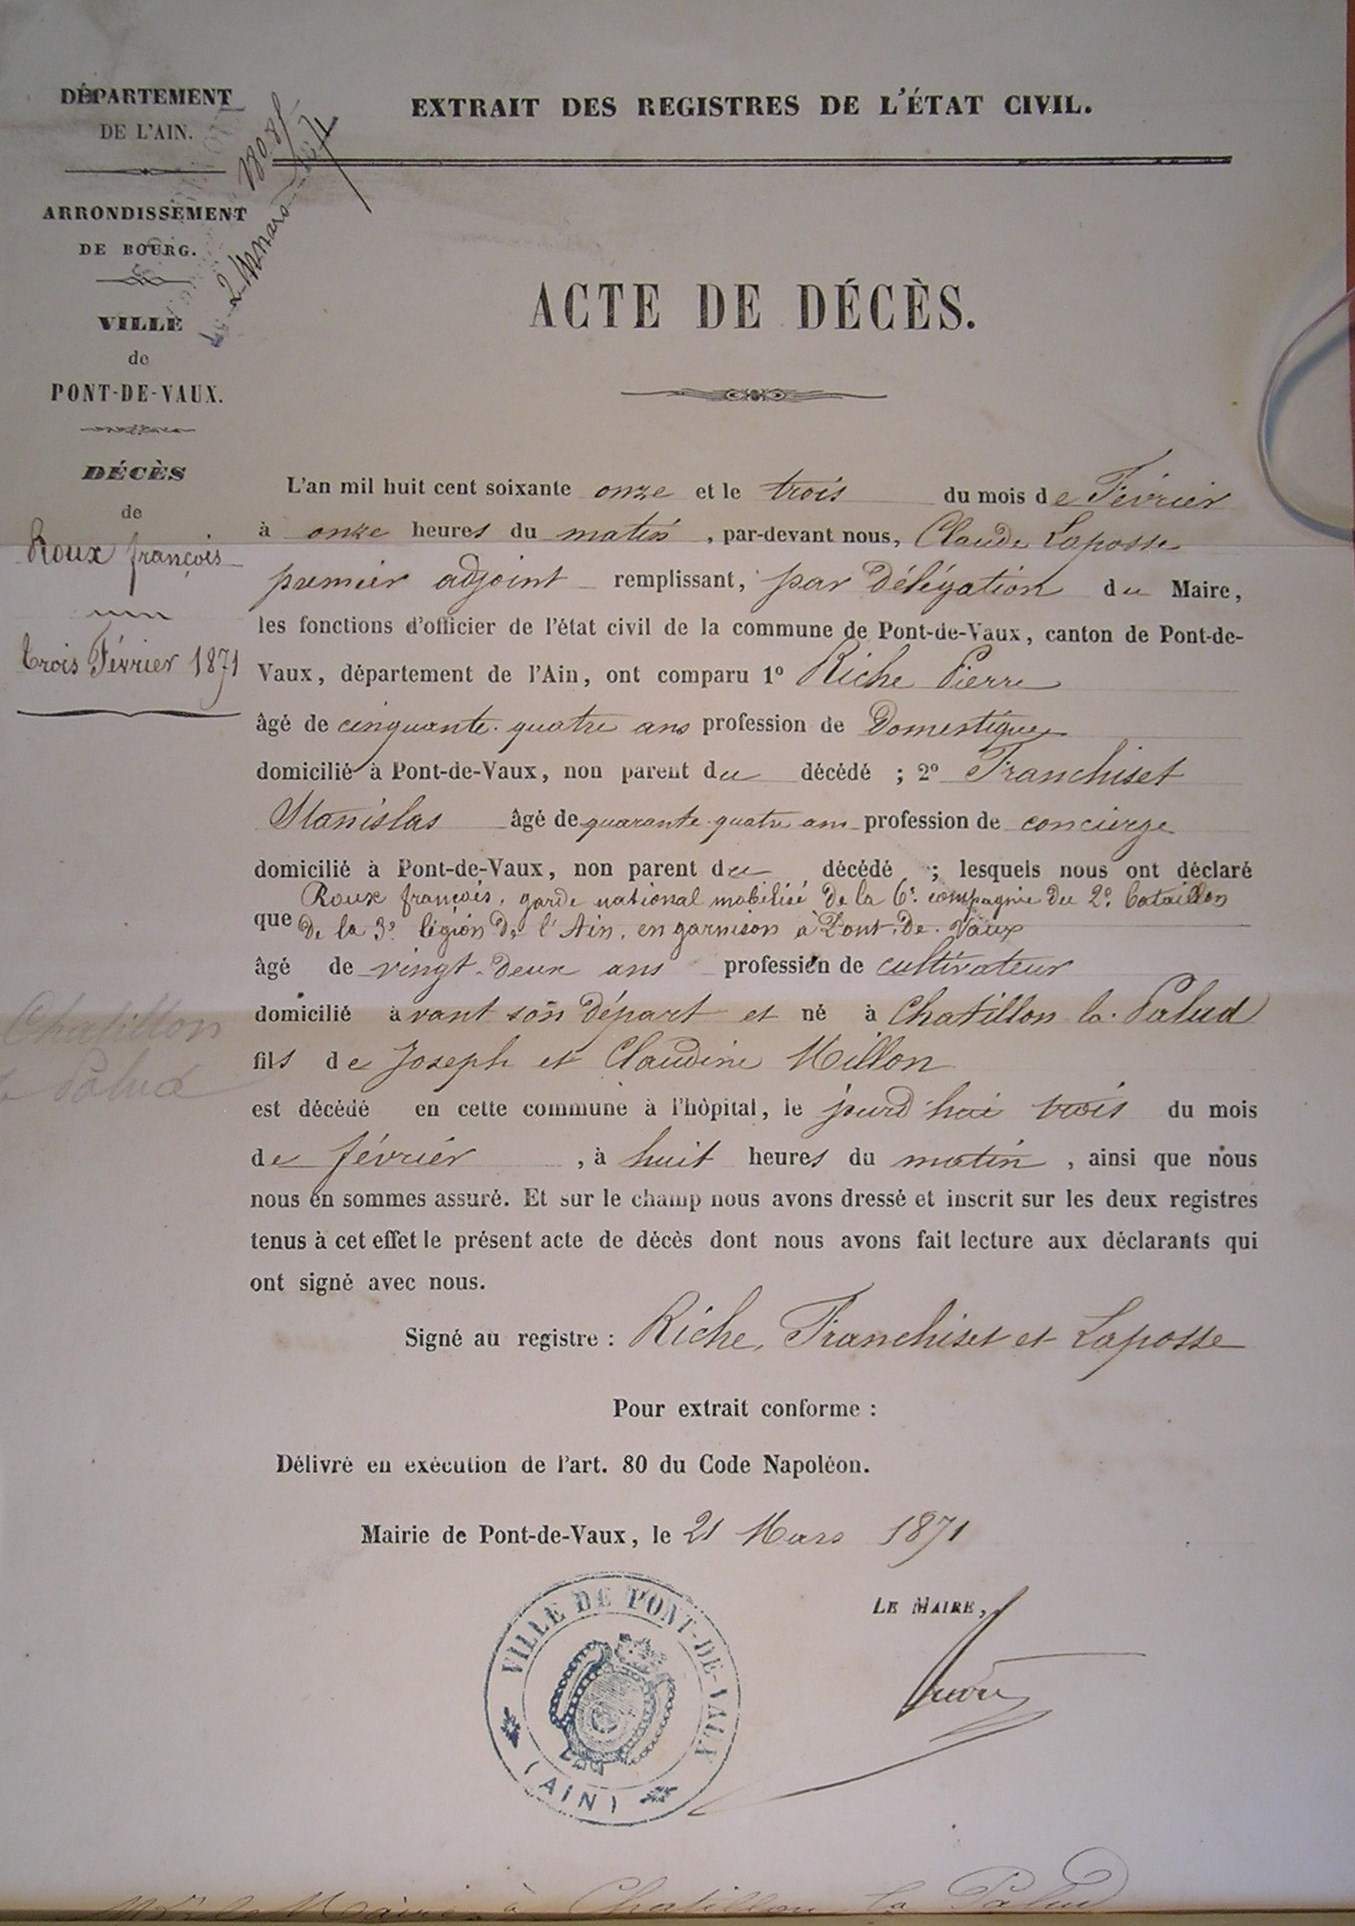 DÉPARTEMENT
DE L'AIN.
ARRONDISSEMENT
DE BOURG.
VILLE
de
PONT-DE-VAUX.
DÉCÈS
de
Roux françois
trois Février 1871
Chatillon
la Palud
EXTRAIT DES REGISTRES DE L'ÉTAT CIVIL.
ACTE DE DÉCÈS.
L'an mil huit cent soixante onze et le trois du mois de Février
à onze heures du matin, par-devant nous, Claude Laposse
premier adjoint remplissant, par Délégation du Maire,
les fonctions d'officier de l'état civil de la commune de Pont-de-Vaux, canton de Pont-de-
Vaux, département de l'Ain, ont comparu 1º Riche Pierre
âgé de cinquante-quatre ans profession de Domestique
domicilié à Pont-de-Vaux, non parent du décédé ; 2º Franchiset
Stanislas âgé de quarante-quatre ans profession de concierge
domicilié à Pont-de-Vaux, non parent du décédé ; lesquels nous ont déclaré
Roux françois, garde national mobilisé de la 6e compagnie du 2e bataillon
que de la 3e légion de l'Ain, en garnison à Pont-de-Vaux
âgé de vingt-deux ans profession de cultivateur
domicilié avant son départ et né à Chatillon la Palud
fils de Joseph et Claudine Millon
est décédé en cette commune à l'hôpital, le jourd'hui trois du mois
de février, à huit heures du matin, ainsi que nous
nous en sommes assuré. Et sur le champ nous avons dressé et inscrit sur les deux registres
tenus à cet effet le présent acte de décès dont nous avons fait lecture aux déclarants qui
ont signé avec nous.
Signé au registre : Riche, Franchiset et Laposse
Pour extrait conforme :
Délivré en exécution de l'art. 80 du Code Napoléon.
Mairie de Pont-de-Vaux, le 21 Mars 1871
LE MAIRE,
VILLE DE PONT-DE-VAUX
(AIN)
Mr le Maire à Chatillon la Palud